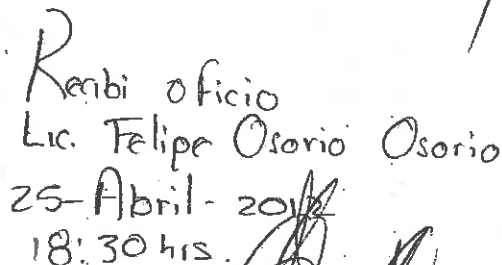 Recibi oficio
Lic. Felipe Osorio Osorio
25-Abril-
18:30 hrs.